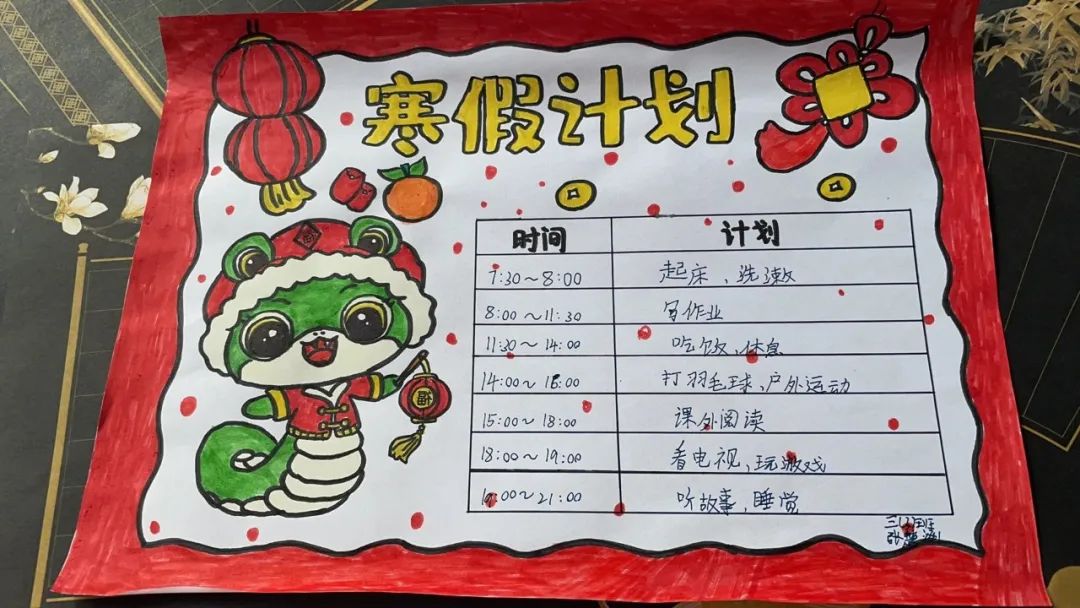 寒假计划
时间 计划
7:30~8:00 起床、洗漱
8:00~11:30 写作业
11:30~14:00 吃饭、休息
14:00~16:00 打羽毛球、户外运动
15:00~18:00 课外阅读
18:00~19:00 看电视、玩游戏
:00~21:00 听故事,睡觉
福